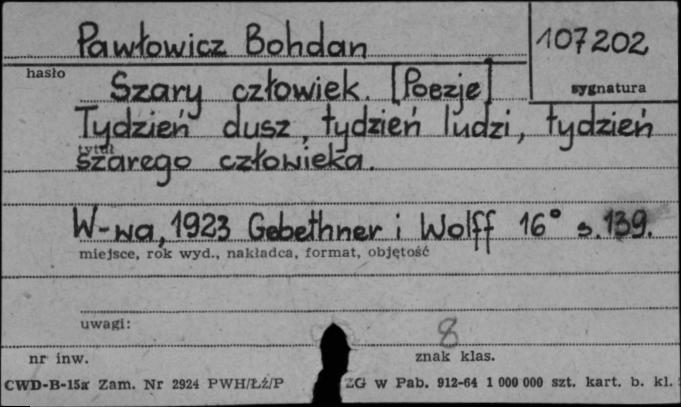 Pawłowicz Bohdan
107202
hasło
sygnatura
Szary człowiek. [Poezje]
Tydzień dusz, tydzień ludzi, tydzień
tytuł
szarego człowieka.
W-wa, 1923 Gebethner i Wolff 16° s. 139.
miejsce, rok wyd., nakładca, format, objętość
uwagi:
8
nr inw.
znak klas.
CWD-B-15a Zam. Nr 2924 PWH/Łź/P ZG w Pab. 912-64 1 000 000 szt. kart. b. kl.